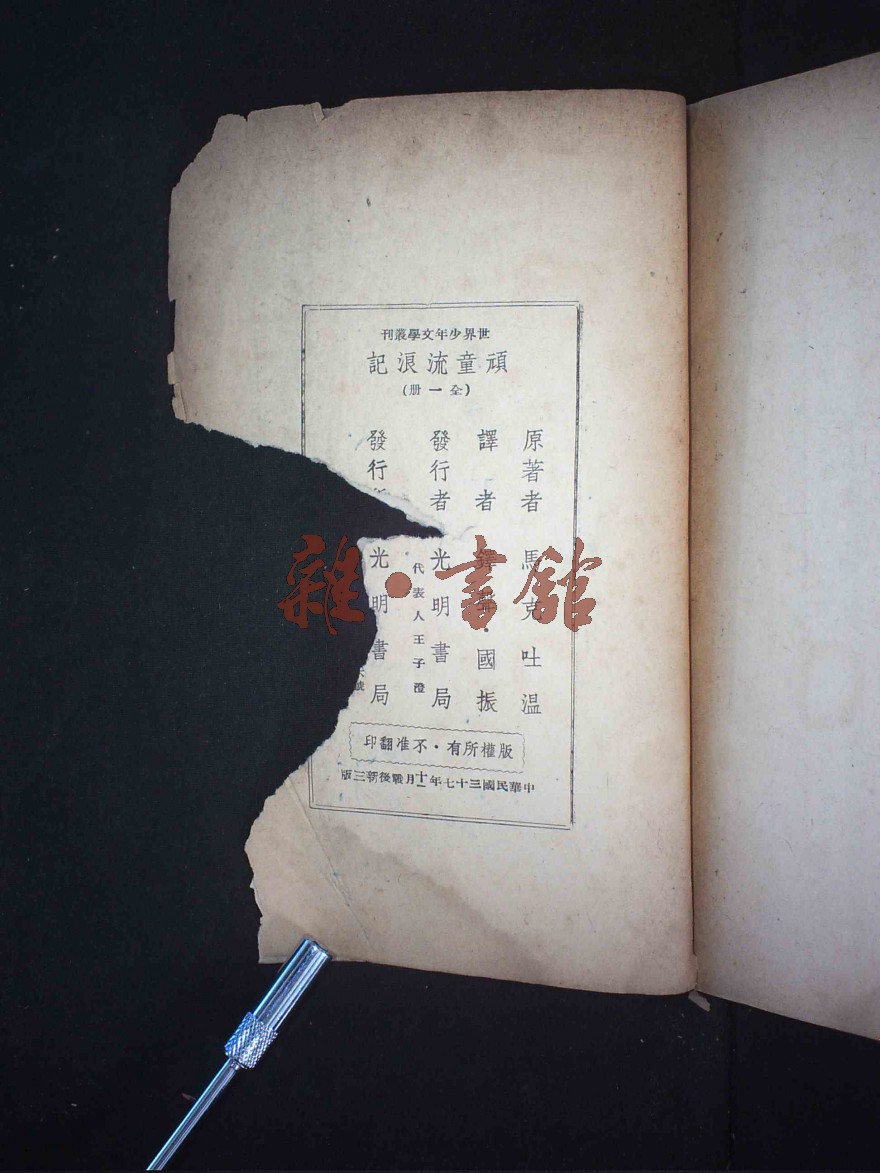 世界少年文學叢刊
頑童流浪記
(全一册)
原著者 馬克吐溫
譯者 ·國振
發行者 光明書局
代表人王子澄
發行 光明書局
號
版權所有·不准翻印
中華民國三十七年十一月戰後新三版
雜·書館